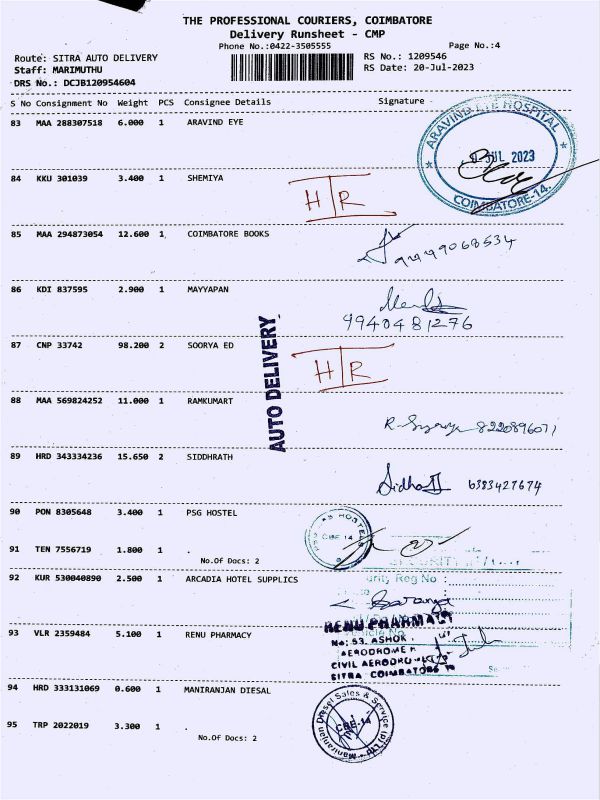 THE PROFESSIONAL COURIERS, COIMBATORE
Delivery Runsheet - CMP
Phone No.:0422-3505555
Page No.:4
Route: SITRA AUTO DELIVERY
RS No.: 1209546
Staff: MARIMUTHU
RS Date: 20-Jul-2023
DRS No.: DCJB120954604
S No Consignment No Weight PCS Consignee Details Signature
83 MAA 288307518 6.000 1 ARAVIND EYE
ARAVIND EYE HOSPITAL
JUL 2023
COIMBATORE-14.
84 KKU 301039 3.400 1 SHEMIYA
H R
85 MAA 294873054 12.600 1 COIMBATORE BOOKS
86 KDI 837595 2.900 1 MAYYAPAN
9940481276
87 CNP 33742 98.200 2 SOORYA ED
H R
AUTO DELIVERY
88 MAA 569824252 11.000 1 RAMKUMART
89 HRD 343334236 15.650 2 SIDDHRATH
6383427674
90 PON 8305648 3.400 1 PSG HOSTEL
CBE 14
91 TEN 7556719 1.800 1 .
No.Of Docs: 2
92 KUR 530040890 2.500 1 ARCADIA HOTEL SUPPLICS
Reg No :
93 VLR 2359484 5.100 1 RENU PHARMACY
RENU PHARMACY
No: 53, ASHOK
AERODROME
CIVIL AERODRO
SITRA COIMBATORE
94 HRD 333131069 0.600 1 MANIRANJAN DIESAL
Maniranjan Diesel Sales & Service (p) Ltd
CBE-14
95 TRP 2022019 3.300 1 .
No.Of Docs: 2